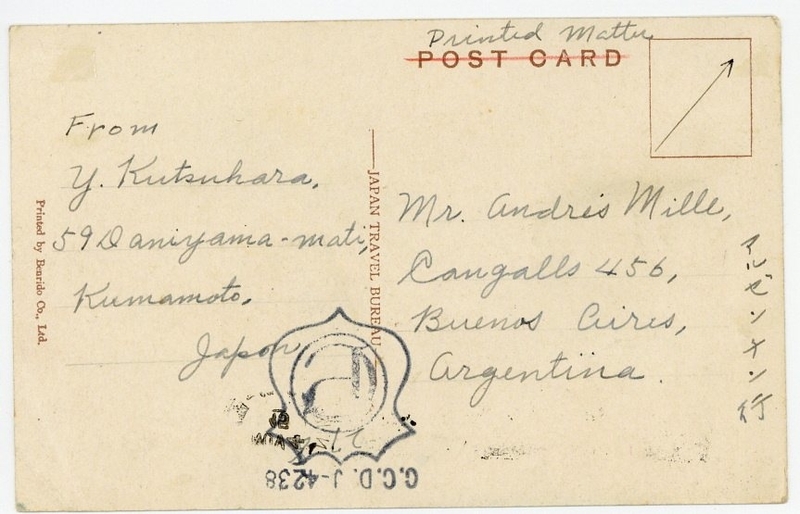 Printed Matter
POST CARD
From
Y. Kutsuhara,
59 Daniyama-mati,
Kumamoto,
Japon
Printed by Benrido Co., Ltd.
JAPAN TRAVEL BUREAU
Mr. Andrés Mille,
Cangalls 456,
Buenos Aires,
Argentina.
アルゼンチン行
C.C.D. J-4238